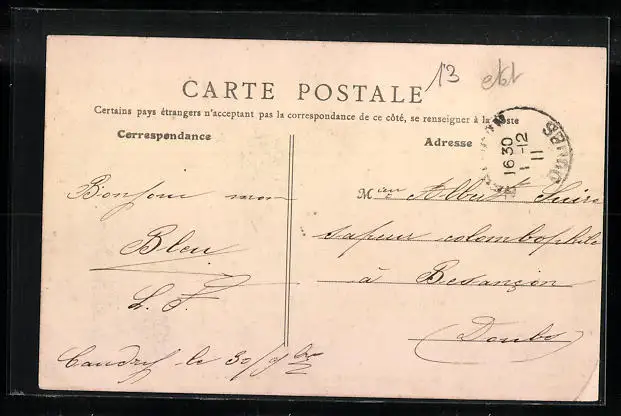 13
CARTE POSTALE
Certains pays étrangers n'acceptant pas la correspondance de ce côté, se renseigner à la Poste
Correspondance
Adresse
16 30
1 -12
11
DOUBS
Bonjour mon
Bleu
L. F.
Caudry le 30/9bre
M Albert Suire
sapeur colombophile
à Besançon
(Doubs)